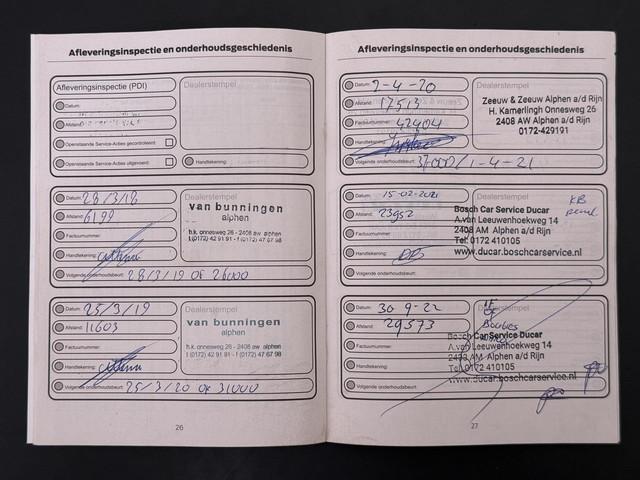 Afleveringsinspectie en onderhoudsgeschiedenis
Afleveringsinspectie (PDI)
Dealerstempel
Datum:
Afstand:
Openstaande Service-Acties gecontroleerd:
Openstaande Service-Acties uitgevoerd:
Handtekening:
Datum: 28/3/18
Dealerstempel
Afstand: 6199
van bunningen
alphen
Factuurnummer:
h.k. onnesweg 26 - 2408 aw alphen a/d rijn
t (0172) 42 91 91 - f (0172) 47 67 98
Handtekening:
Volgende onderhoudsbeurt: 28/3/19 OF 26000
Datum: 25/3/19
Dealerstempel
Afstand: 11603
van bunningen
alphen
Factuurnummer:
h.k. onnesweg 26 - 2408 aw alphen a/d rijn
t (0172) 42 91 91 - f (0172) 47 67 98
Handtekening:
Volgende onderhoudsbeurt: 25/3/20 OF 31000
26
Afleveringsinspectie en onderhoudsgeschiedenis
Datum: 2-4-20
Dealerstempel
Afstand: 17513
Zeeuw & Zeeuw Alphen a/d Rijn
H. Kamerlingh Onnesweg 26
Factuurnummer: 42404
2408 AW Alphen a/d Rijn
0172-429191
Handtekening:
Volgende onderhoudsbeurt: 37000/1-4-21
Datum: 15-02-2021
Dealerstempel
KB
Afstand: 23952
Bosch Car Service Ducar
A.van Leeuwenhoekweg 14
Factuurnummer:
2408 AM Alphen a/d Rijn
Tel: 0172 410105
Handtekening:
www.ducar.boschcarservice.nl
Volgende onderhoudsbeurt:
Datum: 30 9-22
Dealerstempel
Afstand: 29573
Bougies
Bosch Car Service Ducar
A.van Leeuwenhoekweg 14
Factuurnummer:
2408 AM Alphen a/d Rijn
Tel: 0172 410105
Handtekening:
www.ducar.boschcarservice.nl
Volgende onderhoudsbeurt:
27